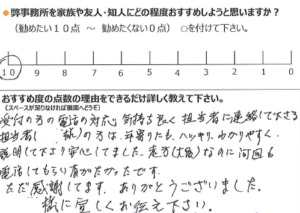 ●弊事務所を家族や友人・知人にどの程度おすすめしようと思いますか?
(勧めたい10点 ~ 勧めたくない0点) ○を付けて下さい。
10 9 8 7 6 5 4 3 2 1 0
おすすめ度の点数の理由をできるだけ詳しく教えて下さい。
(スペースが足りなければ裏面へどうぞ)
受付の方の電話の対応、気持ち良く担当者に連絡して下さる
担当者( 様)の方は、年寄りにも、ハッキリ、わかりやすく、
説明して下さり安心してました。遠方(大阪)なのに何回も
電話してもらい有がたかったです。
ただ感謝してます。ありがとうございました。
様に宜しくお伝え下さい。